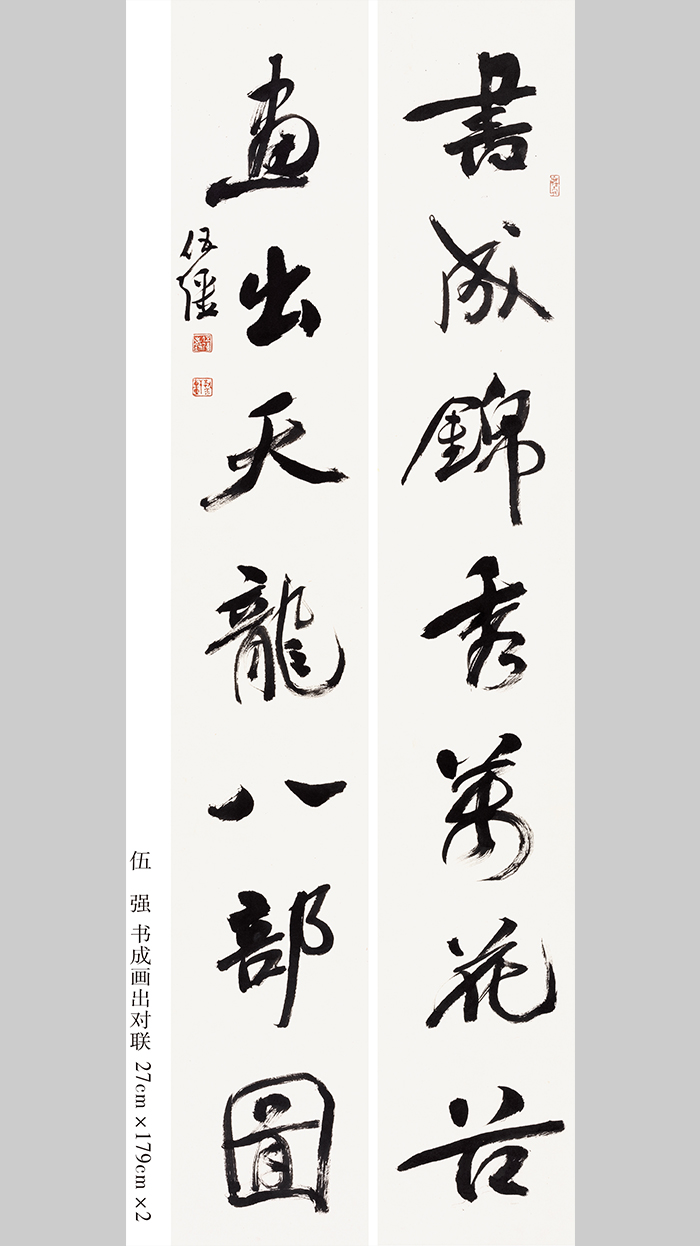 書成錦秀萬花谷
畫出天龍八部圖
伍彊
伍 强 书成画出对联 27cm×179cm×2